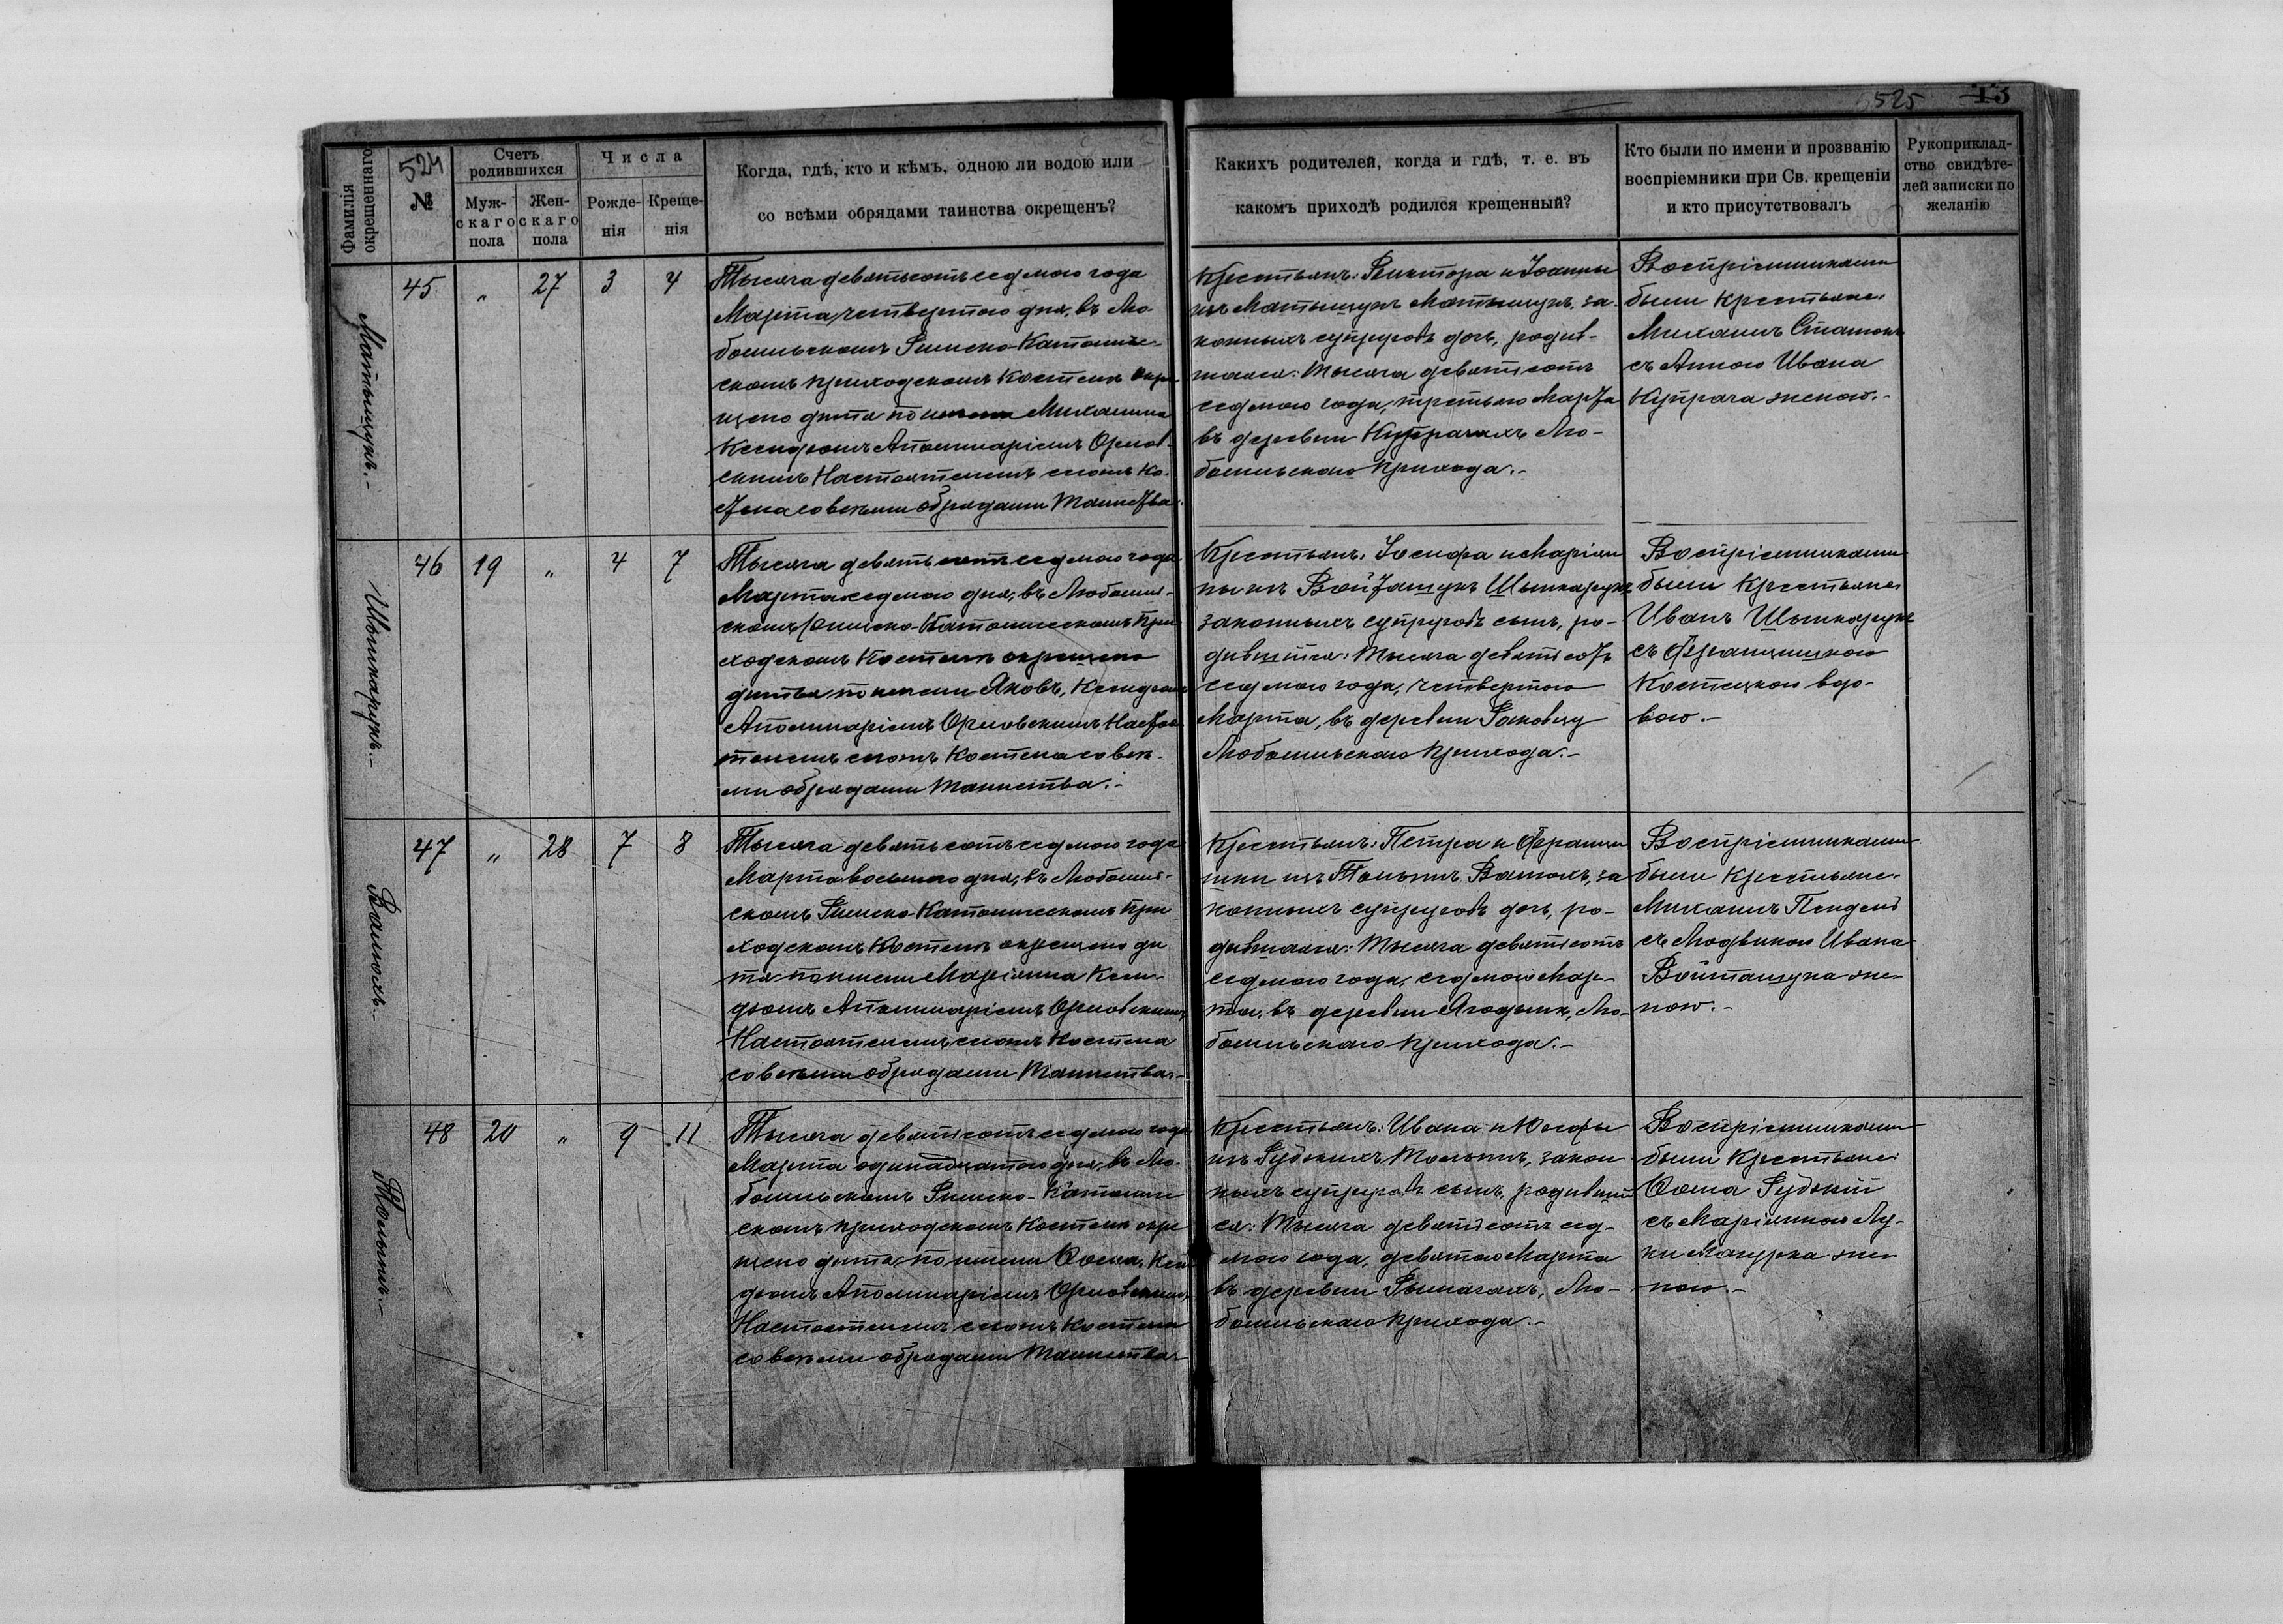 525 13
Фамилія окрещеннаго
524
№
Счетъ родившихся
Мужскаго пола
Женскаго пола
Числа
Рожденія
Крещенія
Когда, гдѣ, кто и кѣмъ, одною ли водою или
со всѣми обрядами таинства окрещенъ?
Какихъ родителей, когда и гдѣ, т. е. въ
какомъ приходѣ родился крещенный?
Кто были по имени и прозванію
воспріемники при Св. крещеніи
и кто присутствовалъ
Рукоприклад-
ство свидѣте-
лей записки по
желанію
Матыщукъ.-
45 " 27 3 4
Тысяча девятьсотъ седмого года
Марта, четвертого дня, въ Лю-
бомльскомъ Римско-Католиче-
скомъ приходскомъ костелѣ окре
щено дитя по имени Михалина
Ксендзомъ Аполинаріемъ Орлов-
скимъ Настоятелемъ сего ко-
стела со всѣми обрядами Таинства.
Крестьянъ: Виктора и Іоанны
изъ Матыщукъ Матыщукъ, за-
конныхъ супруговъ дочь, родив-
шаяся: Тысяча девятьсотъ
седмого года, третьяго Марта
въ деревни Купрачахъ Лю-
бомльскаго прихода.-
Воспріемниками
были крестьяне:
Михаилъ
съ Анною Ивана
Купрача женою.-
Шышкарукъ.-
46 19 " 4 7
Тысяча девятьсотъ седмого года
Марта седмого дня, въ Любомль-
скомъ Римско-Католическомъ при
ходскомъ костелѣ окрещено
дитя по имени Яковъ, Ксендзомъ
Аполинаріемъ Орловскимъ Настоя
телемъ сего костела со всѣ-
ми обрядами Таинства.-
Крестьянъ: Іосифа и Маріан
ны изъ Войташукъ Шышкарукъ
законныхъ супруговъ сынъ, ро-
дившійся: Тысяча девятьсотъ
седмого года, четвертого
Марта, въ деревни
Любомльскаго прихода.-
Воспріемниками
были крестьяне:
Иванъ Шышкарукъ
съ Францишкою
Костецкою вдо-
вою.-
47 " 28 7 8
Тысяча девятьсотъ седмого года
Марта восьмого дня, въ Любомль-
скомъ Римско-Католическомъ при
ходскомъ костелѣ окрещено ди
тя по имени Маріанна Ксен-
дзомъ Аполинаріемъ Орловскимъ,
Настоятелемъ сего костела
со всѣми обрядами Таинства.-
Крестьянъ: Петра и Францы
шки изъ за
конныхъ супруговъ дочь, ро-
дившаяся: Тысяча девятьсотъ
седмого года, седмого Мар-
та, въ деревни Ягодынѣ, Лю-
бомльскаго прихода.-
Воспріемниками
были крестьяне:
Михаилъ
съ Людвикою Ивана
Войташука же-
ною.-
48 20 " 9 11
Тысяча девятьсотъ седмого года
Марта одинадцатого дня, въ Лю-
бомльскомъ Римско-Католиче
скомъ приходскомъ костелѣ окре
щено дитя по имени Ѳома, Ксен
дзомъ Аполинаріемъ Орловскимъ,
Настоятелемъ сего костела
со всѣми обрядами Таинства.-
Крестьянъ: Ивана и Юзефы
изъ закон
ныхъ супруговъ сынъ, родившій
ся: Тысяча девятьсотъ сед-
мого года, девятого Марта
въ деревни Рымачахъ, Лю-
бомльскаго прихода.-
Воспріемниками
были крестьяне:
Ѳома
съ Маріанною Лу-
ки Мазурка же-
ною.-